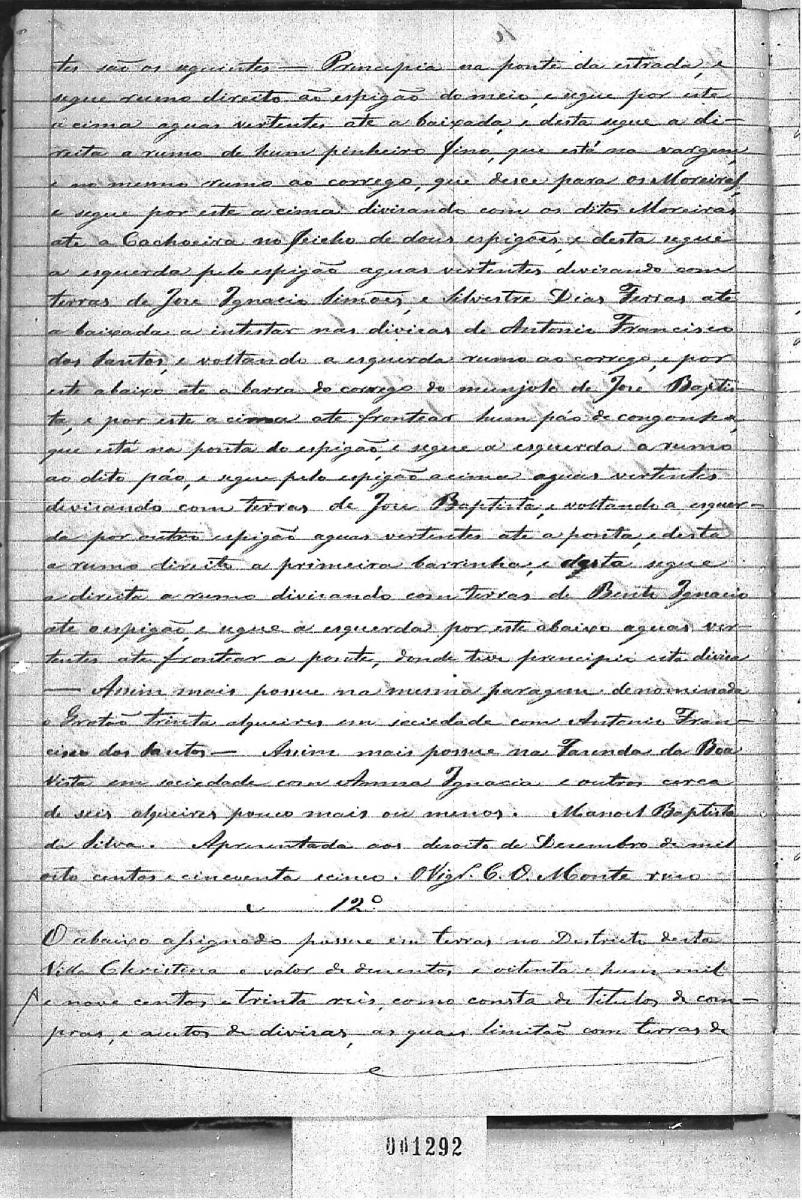 tes são os seguintes — Principia na ponte da estrada, e
segue rumo direito ao espigão do meio, e segue por este
a cima aguas vertentes ate a baixada, e desta segue a di-
reita a rumo de hum pinheiro fino, que está na vargem,
e no mesmo rumo ao corrego, que desce para os Moreiras,
e segue por este a cima divisando com os ditos Moreiras
ate a Cachoeira no feicho de dous espigões, e desta segue
a esquerda pelo espigão aguas vertentes devisando com
terras de Jose Ignacio Simões, e Silvestre Dias Ferras ate
a baixada a intestar nas divisas de Antonio Francisco
dos Santos, e voltando a esquerda rumo ao corrego, e por
este abaixo ate a barra do corrego do munjolo de Jose Baptis-
ta, e por este a cima ate frontear hum páo de congonha,
que está na ponta do espigão, e segue a esquerda a rumo
ao dito páo, e segue pelo espigão acima aguas vertentes
devisando com terras de Jose Baptista, e voltando a esquer-
da por outro espigão aguas vertentes ate a ponta, e desta
a rumo direito a primeira barrinha, e desta segue
a direita a rumo divisando com terras de Bento Ignacio
ate o espigão, e segue a esquerda por este abaixo aguas ver-
tentes ate frontear a ponte, donde teve principio esta divisa
— Assim mais possue na mesma paragem denominada
o Grotão trinta alqueires em sociedade com Antonio Fran-
cisco dos Santos — Assim mais possue na Fazenda da Boa
Vista em sociedade com Anna Ignacia e outros cerca
de seis alqueires pouco mais ou menos. Manoel Baptista
da Silva. Apresentada aos desoito de Desembro de mil
oito centos e cincoenta e cinco. O Vigr. C. O. Monte raso
12º
O abaixo assignado possue em terras no Destricto desta
Villa Christina o valor de dusentos e oitenta e hum mil
e nove centos e trinta reis, como consta de titulos de com-
pras, e autos de divisas, as quaes limitão com terras de
001292